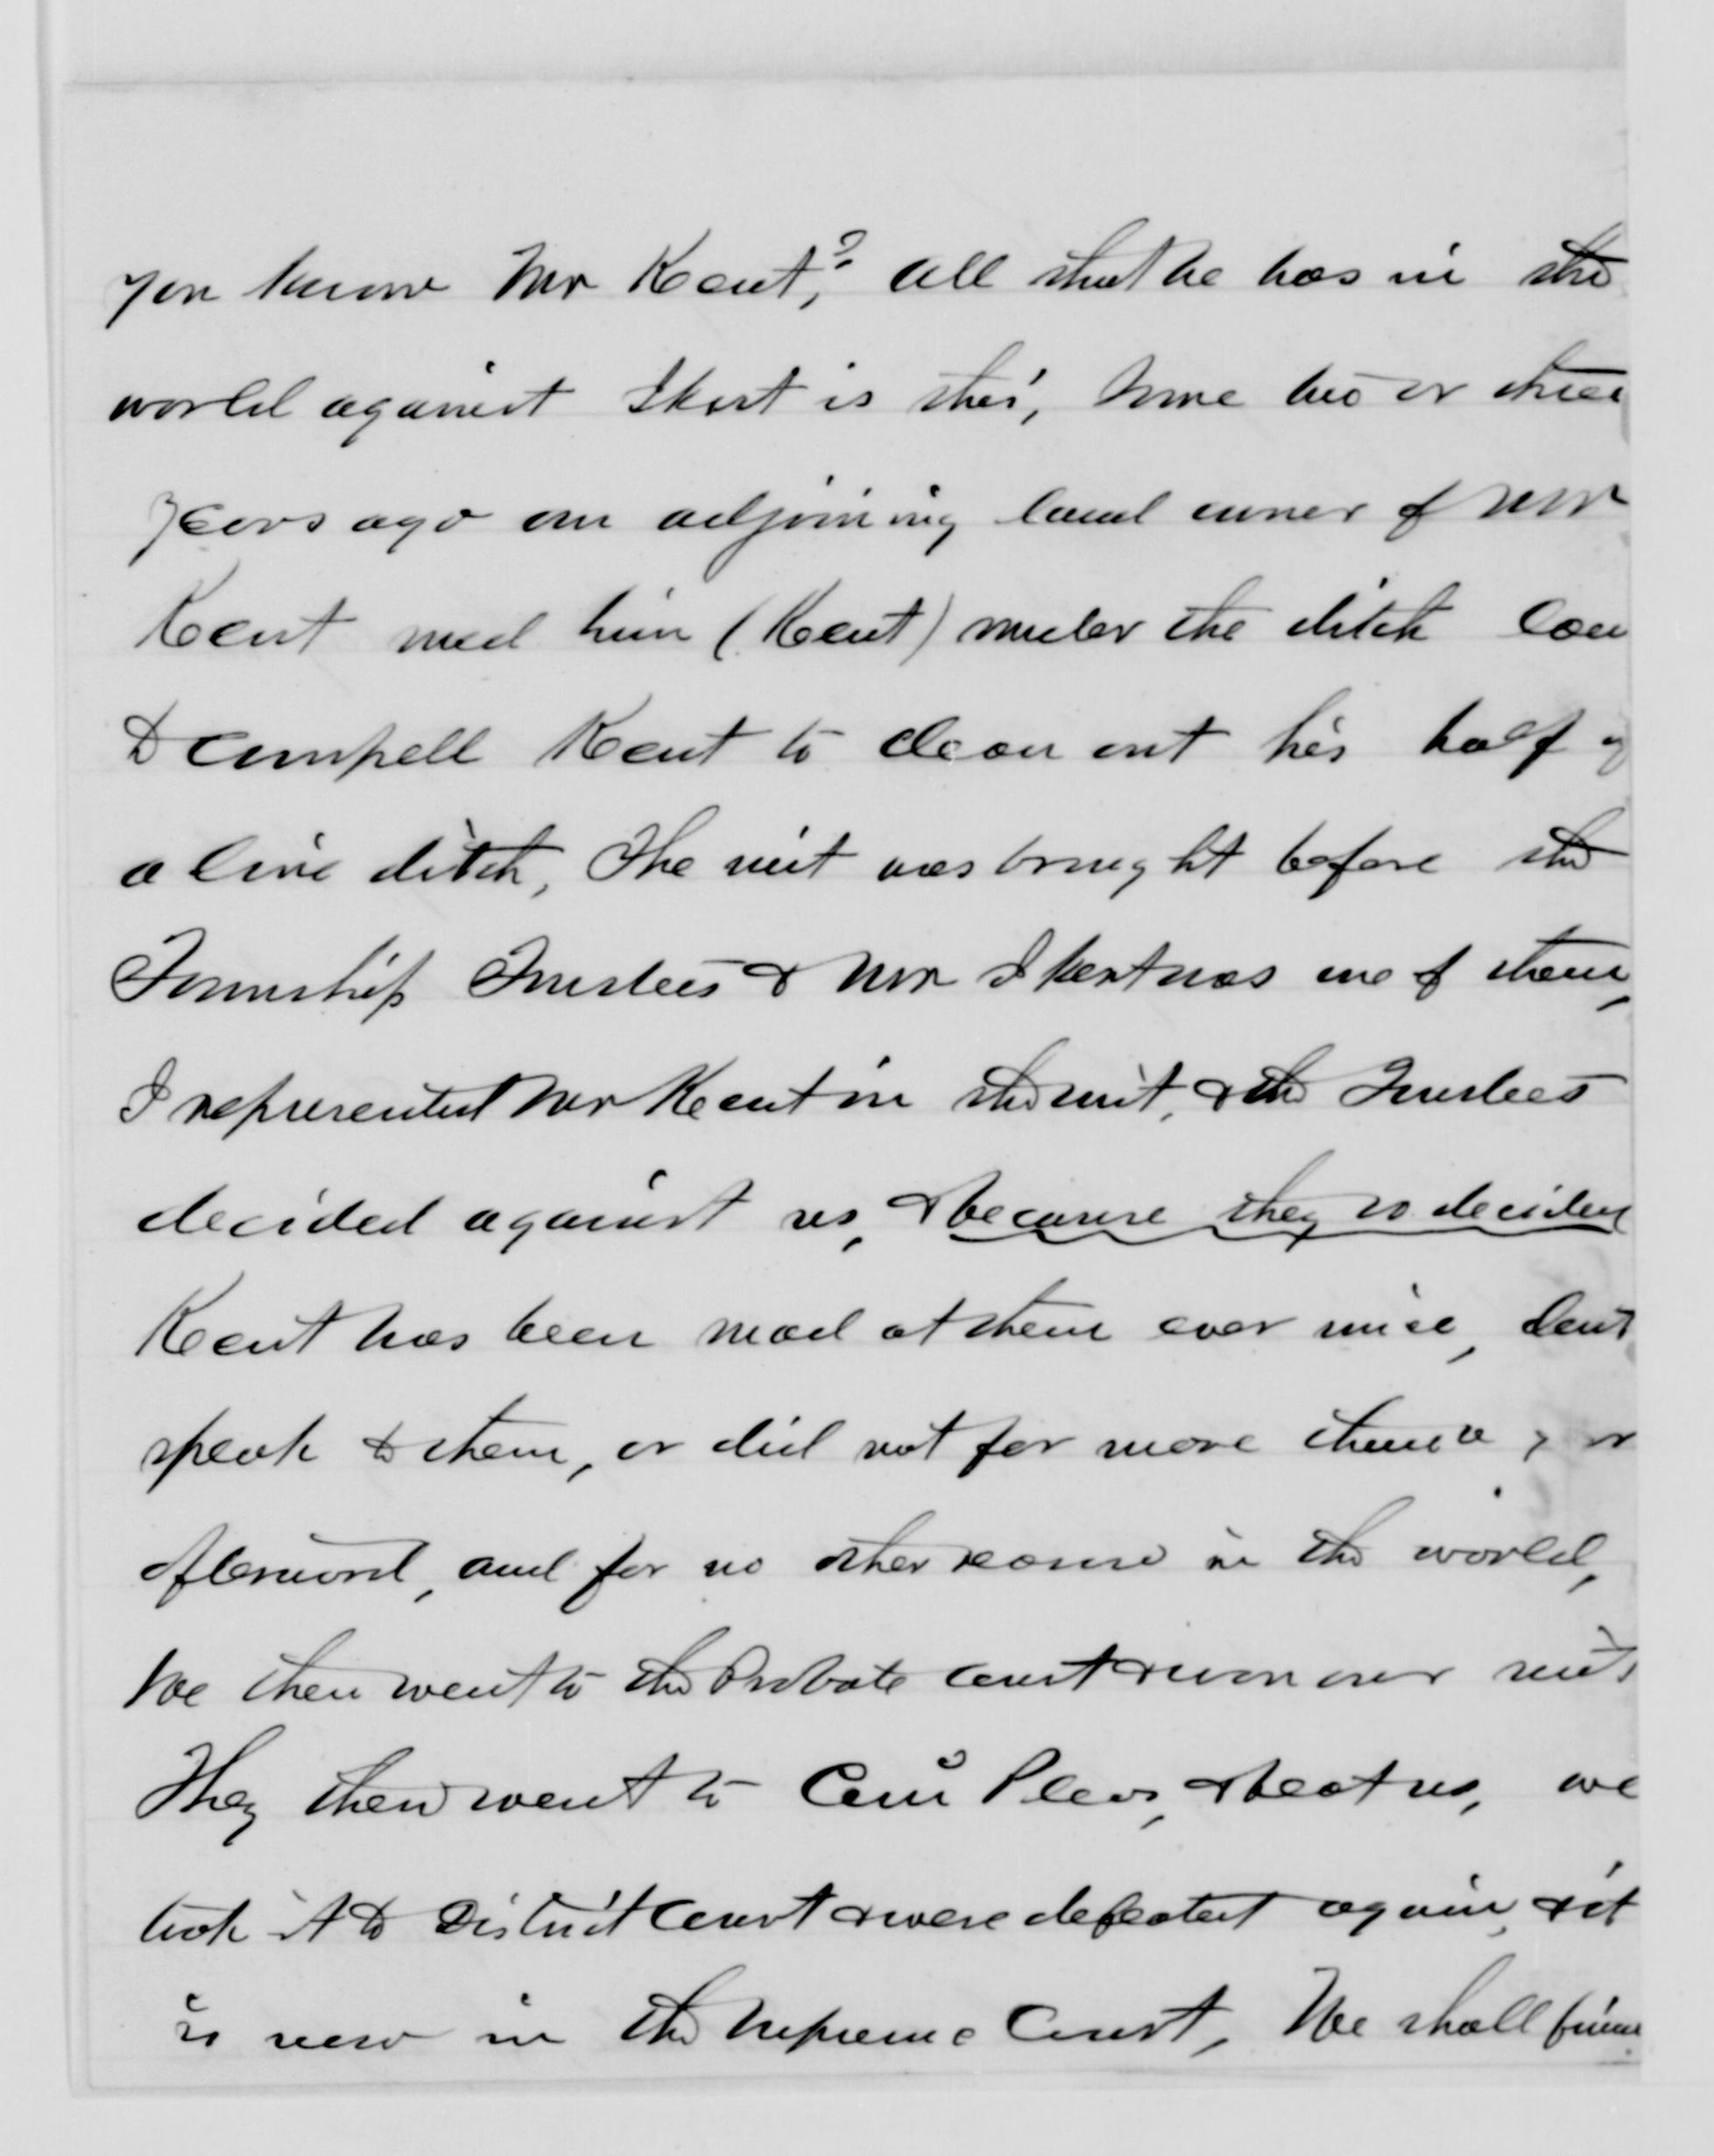 you know Mr Kent,? All that he has in the
world against Skort is this, Some two or three
years ago an adjoining land owner of Mr
Kent sued him (Kent) under the ditch law
to compell Kent to clean out his half of
a line ditch, The suit was brought before the
Township Trustees & Mr Skort was one of them,
I represented Mr Kent in the suit, & the Trustees
decided against us, & because they so decided
Kent has been mad at them ever since, dont
speak to them, or did not for more than a year
afterward, and for no other cause in the world,
We then went to the Probate Court & won our suit
They then went to Com Pleas, & beat us, we
took it to District Court & were defeated again, & it
is now in the Supreme Court, We shall